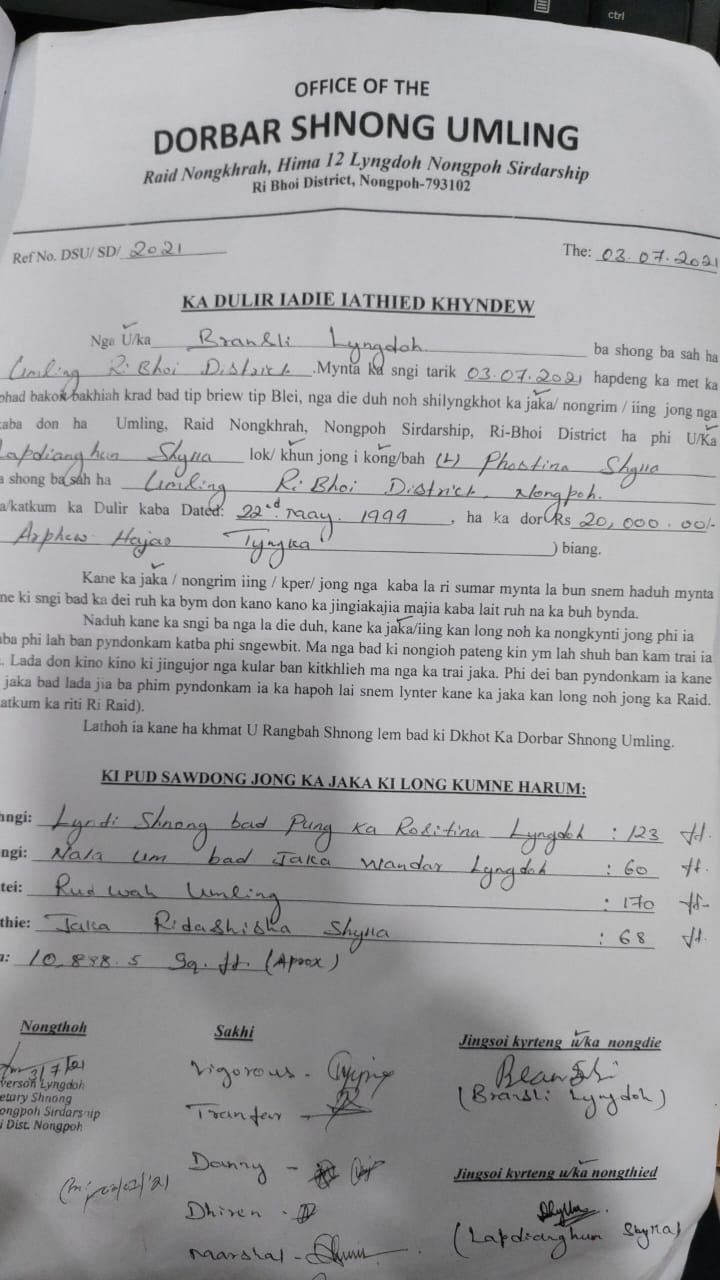 ctrl
OFFICE OF THE
DORBAR SHNONG UMLING
Raid Nongkhrah, Hima 12 Lyngdoh Nongpoh Sirdarship
Ri Bhoi District, Nongpoh-793102
Ref No. DSU/ SD/ 2021 The: 03.07.2021
KA DULIR IADIE IATHIED KHYNDEW
Nga U/ka Bransli Lyngdoh ba shong ba sah ha
Umling Ri Bhoi District .Mynta ka sngi tarik 03.07.2021 hapdeng ka met ka
phad bakok bakhiah krad bad tip briew tip Blei, nga die duh noh shilyngkhot ka jaka/ nongrim / iing jong nga
kaba don ha Umling, Raid Nongkhrah, Nongpoh Sirdarship, Ri-Bhoi District ha phi U/Ka
Lapdianghun Shylla lok/ khun jong i kong/bah (L) Phostina Shylla
a shong ba sah ha Umling Ri Bhoi District, Nongpoh.
a/katkum ka Dulir kaba Dated: 22nd May. 1999 , ha ka dor Rs 20,000.00/-
Arphew Hajar Tyngka ) biang.
Kane ka jaka / nongrim iing / kper/ jong nga kaba la ri sumar mynta la bun snem haduh mynta
ne ki sngi bad ka dei ruh ka bym don kano kano ka jingiakajia majia kaba lait ruh na ka buh bynda.
Naduh kane ka sngi ba nga la die duh, kane ka jaka/iing kan long noh ka nongkynti jong phi ia
aba phi lah ban pyndonkam katba phi sngewbit. Ma nga bad ki nongioh pateng kin ym lah shuh ban kam trai ia
. Lada don kino kino ki jingujor nga kular ban kitkhlieh ma nga ka trai jaka. Phi dei ban pyndonkam ia kane
jaka bad lada jia ba phim pyndonkam ia ka hapoh lai snem lynter kane ka jaka kan long noh jong ka Raid.
atkum ka riti Ri Raid).
Lathoh ia kane ha khmat U Rangbah Shnong lem bad ki Dkhot Ka Dorbar Shnong Umling.
KI PUD SAWDONG JONG KA JAKA KI LONG KUMNE HARUM:
hngi: Lynti Shnong bad Pung ka Rositina Lyngdoh : 123 ft.
ngi: Nala um bad Jaka Wandar Lyngdoh : 60 ft.
tei: Rud wah Umling : 170 ft-
thie: Jaka Ridashisha Shylla : 68 ft.
a: 10,898.5 Sq. ft. (Aprox)
Nongthoh Sakhi Jingsoi kyrteng u/ka nongdie
3/7/21
verson Lyngdoh
etary Shnong
ongpoh Sirdarship
i Dist. Nongpoh
Vigorous -
Tranfar -
Danny -
Dhiren -
Marshal -
Bransli
(Bransli Lyngdoh)
Jingsoi kyrteng u/ka nongthied
Shylla
(Lapdianghun Shylla)